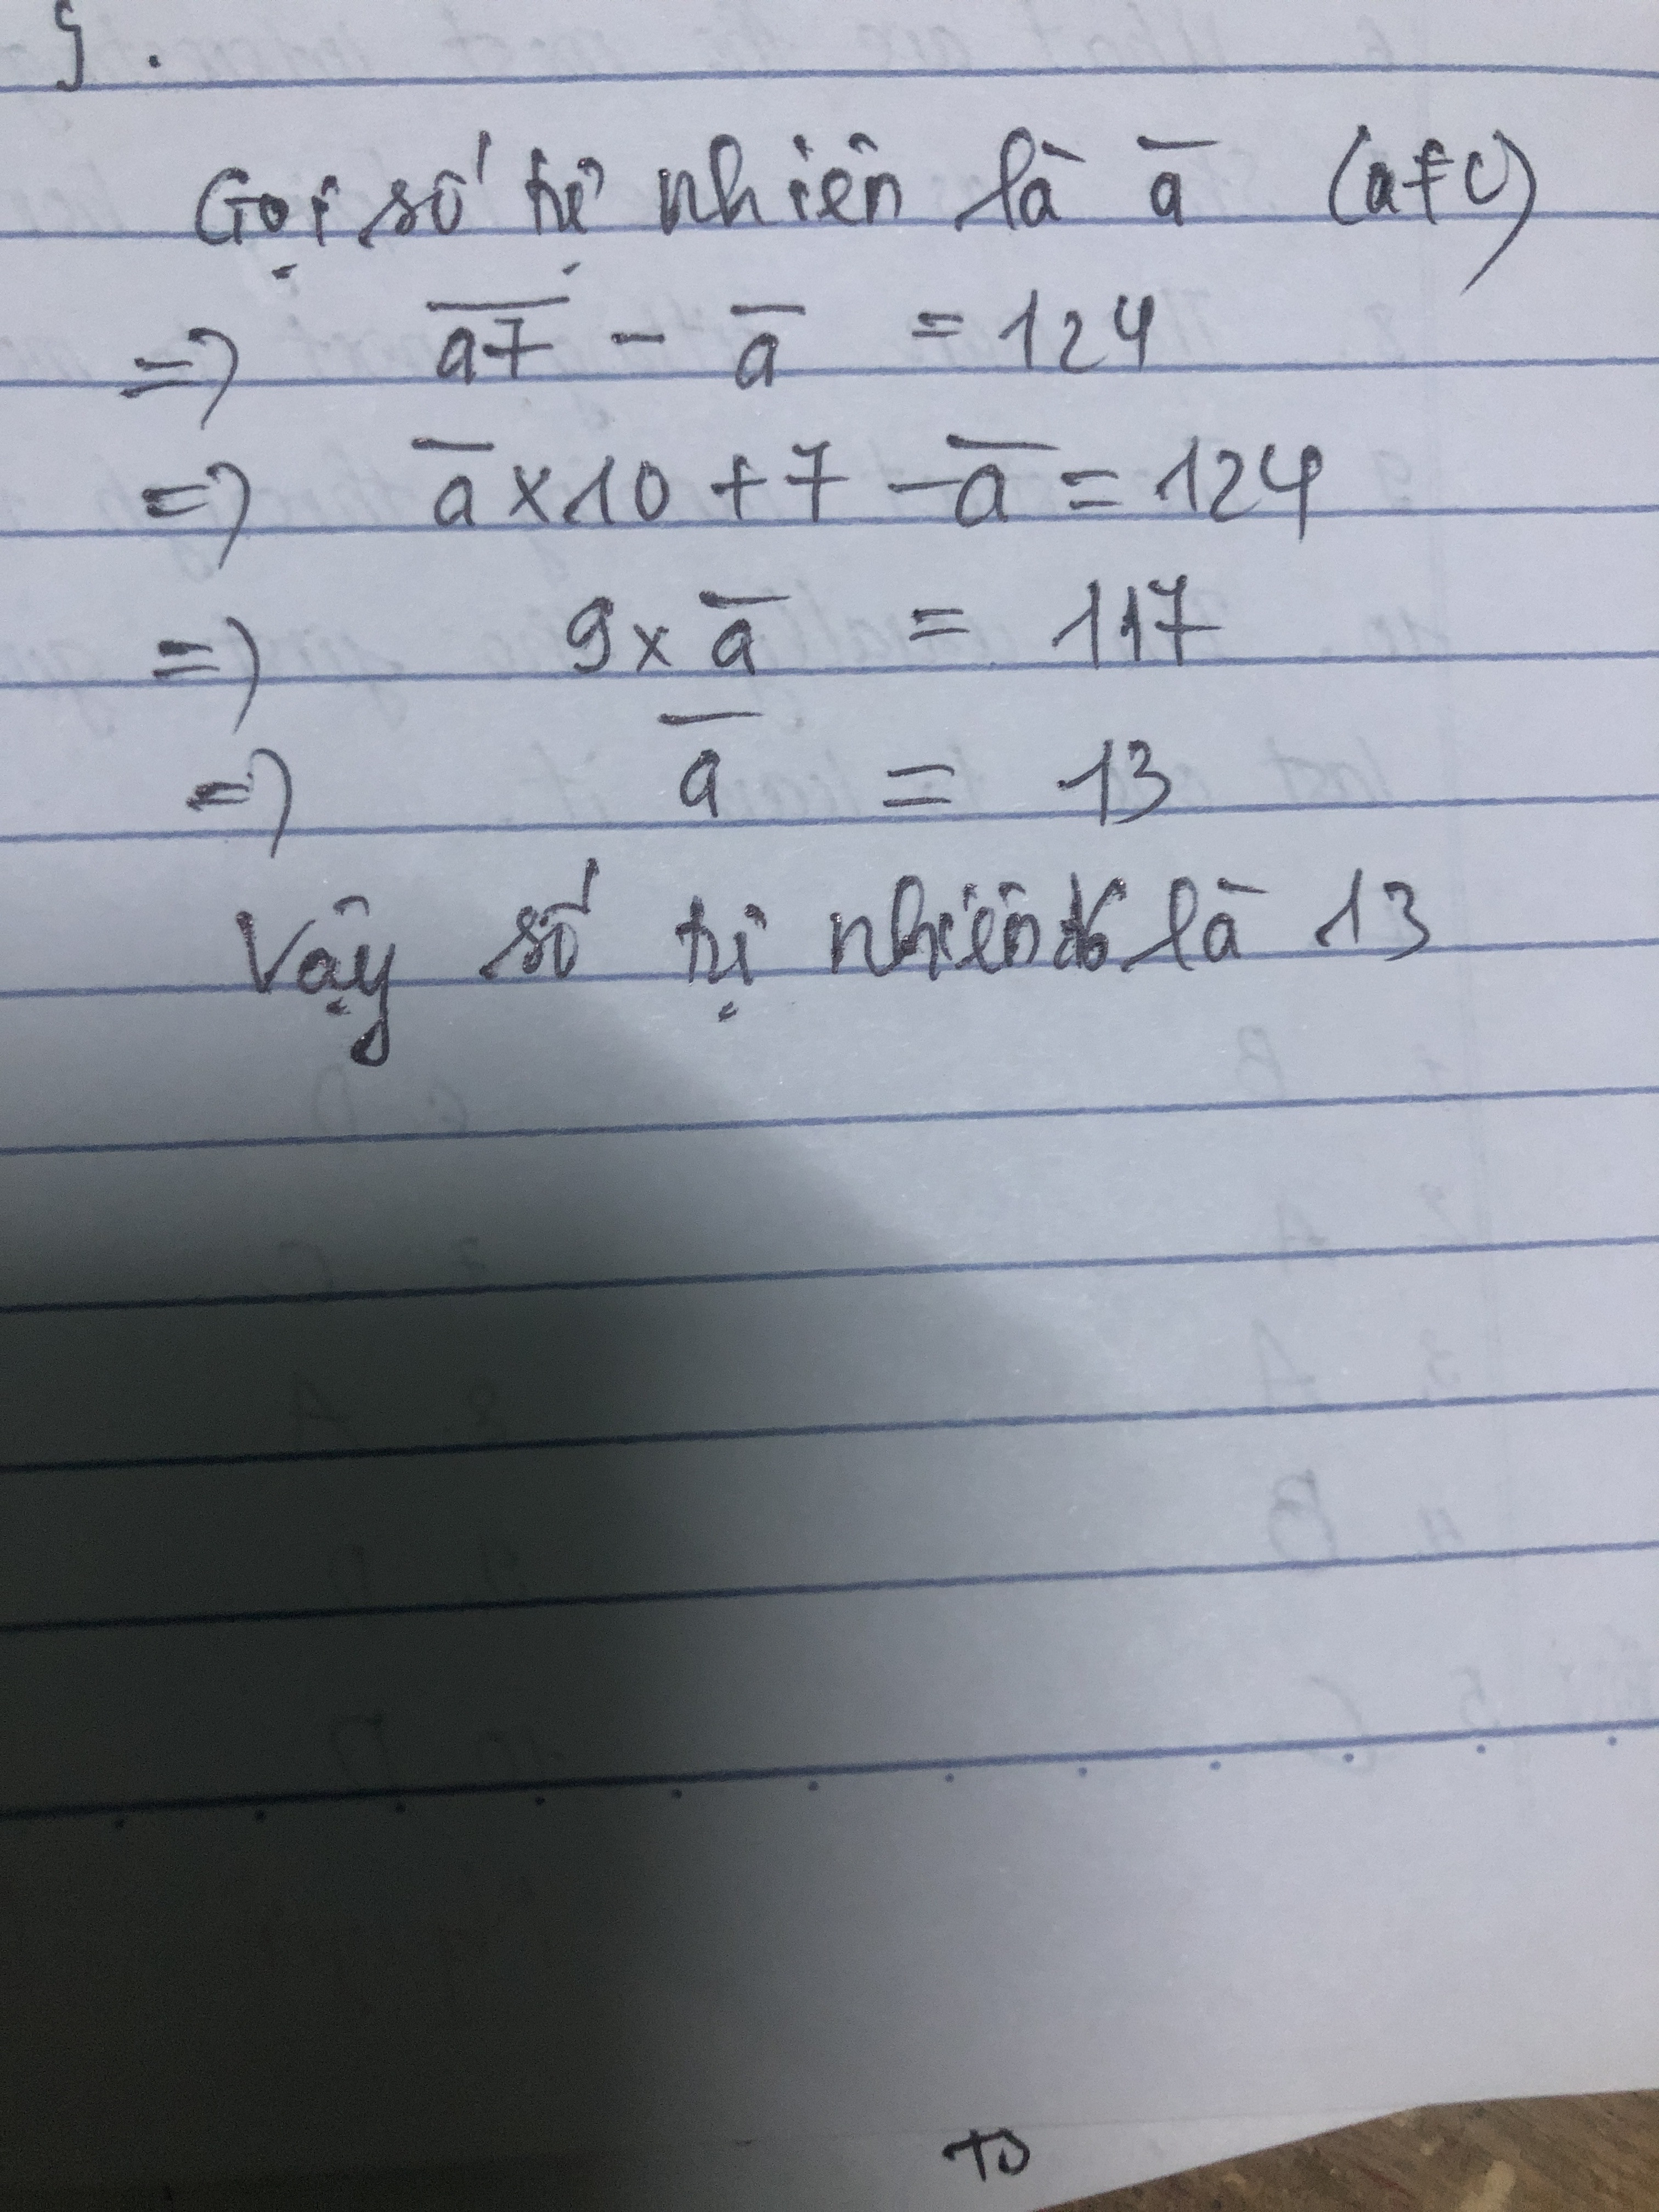 Gọi số tự nhiên là a̅ (a≠0)
=> \overline{a7} - a̅ = 124
=> a̅ x 10 + 7 - a̅ = 124
=> 9 x a̅ = 117
=> a̅ = 13
Vậy số tự nhiên đó là 13